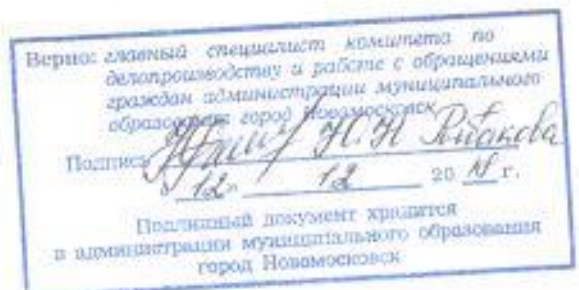 Верно: главный специалист комитета по
делопроизводству и работе с обращениями
граждан администрации муниципального
образования город Новомосковск
Подпись Н.Н Рыбакова
"12" 12 2018 г.
Подлинный документ хранится
в администрации муниципального образования
город Новомосковск